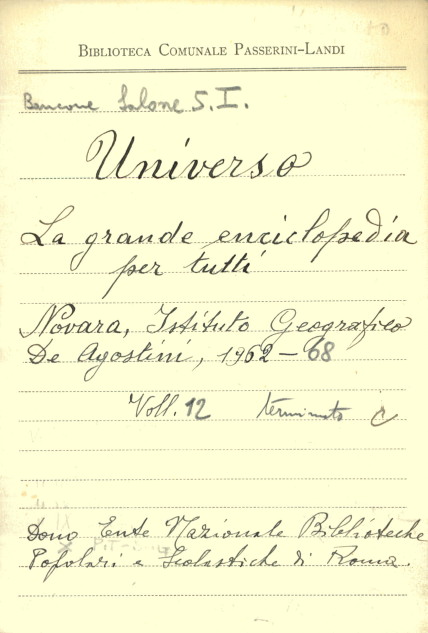 BIBLIOTECA COMUNALE PASSERINI-LANDI
Bancone Salone 5. I.
Universo
La grande enciclopedia
per tutti
Novara, Istituto Geografico
De Agostini, 1962-68
Voll. 12 terminato
Dono Ente Nazionale Biblioteche
Popolari e Scolastiche di Roma.